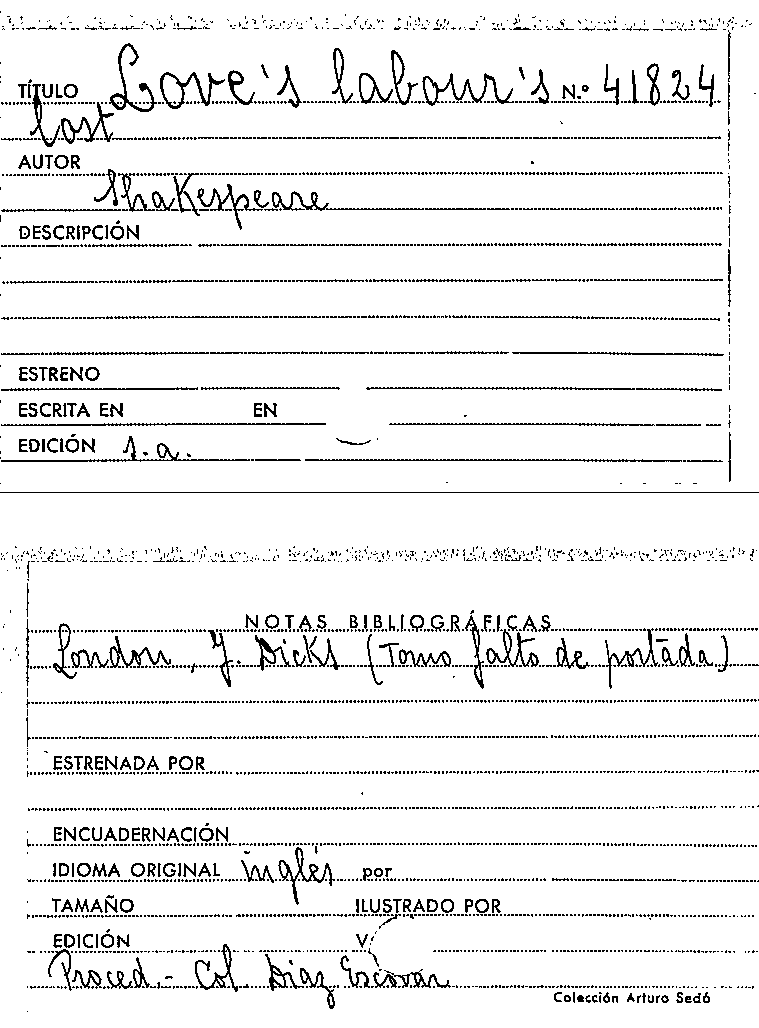 TÍTULO Love's labour's N.º 41824
lost
AUTOR
Shakespeare
DESCRIPCIÓN
ESTRENO
ESCRITA EN EN
EDICIÓN s.a.
NOTAS BIBLIOGRÁFICAS
London, J. Dicks (Tomo falto de portada)
ESTRENADA POR
ENCUADERNACIÓN
IDIOMA ORIGINAL inglés por
TAMAÑO ILUSTRADO POR
EDICIÓN V
Proced.- Col. Diaz Escovar
Colección Arturo Sedó